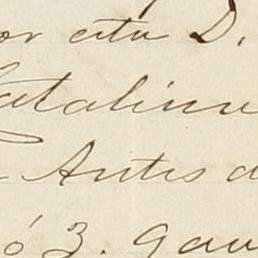 or esta D.
Catalina
Antes d
ó 3. Gau